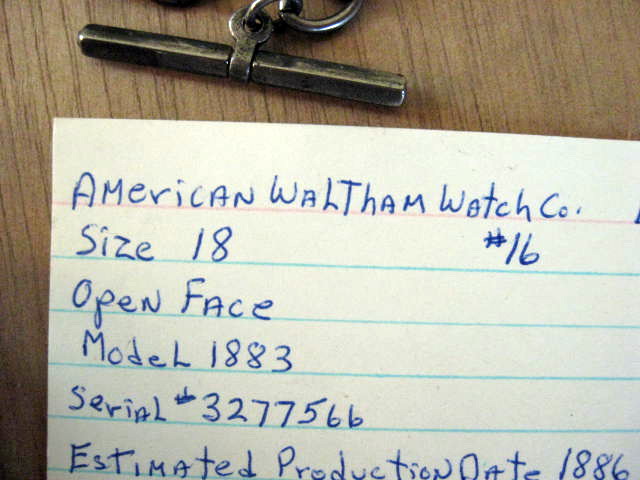 American Waltham Watch Co.
Size 18 #16
Open Face
Model 1883
Serial # 3277566
Estimated Production Date 1886